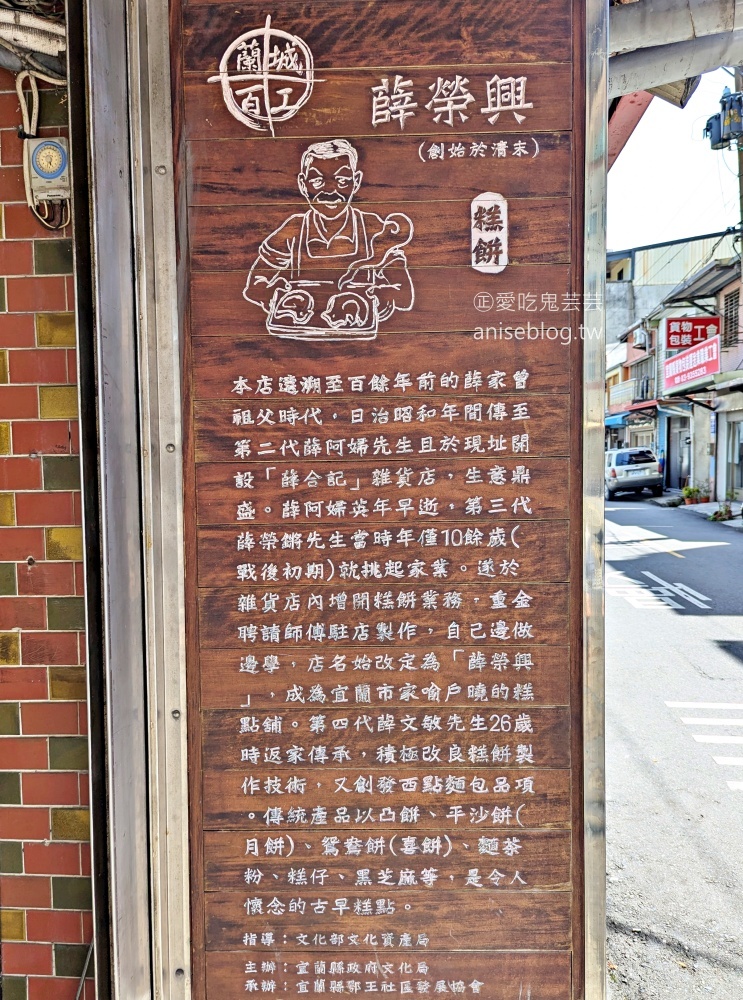 蘭城
百工
薛榮興
(創始於清末)
糕餅
㊣愛吃鬼芸芸
aniseblog.tw
本店還溯至百餘年前的薛家曾
祖父時代，日治昭和年間傳至
第二代薛阿婦先生且於現址開
設「薛合記」雜貨店，生意鼎
盛。薛阿婦英年早逝，第三代
薛榮鏘先生當時年僅10餘歲(
戰後初期)就挑起家業。遂於
雜貨店內增開糕餅業務，重金
聘請師傅駐店製作，自己邊做
邊學，店名始改定為「薛榮興
」，成為宜蘭市家喻戶曉的糕
點舖。第四代薛文敏先生26歲
時返家傳承，積極改良糕餅製
作技術，又創發西點麵包品項
。傳統產品以凸餅、平沙餅(
月餅)、鴛鴦餅(喜餅)、麵茶
粉、糕仔、黑芝麻等，是令人
懷念的古早糕點。
指導：文化部文化資產局
主辦：宜蘭縣政府文化局
承辦：宜蘭縣鄂王社區發展協會
貨物
包裝工會